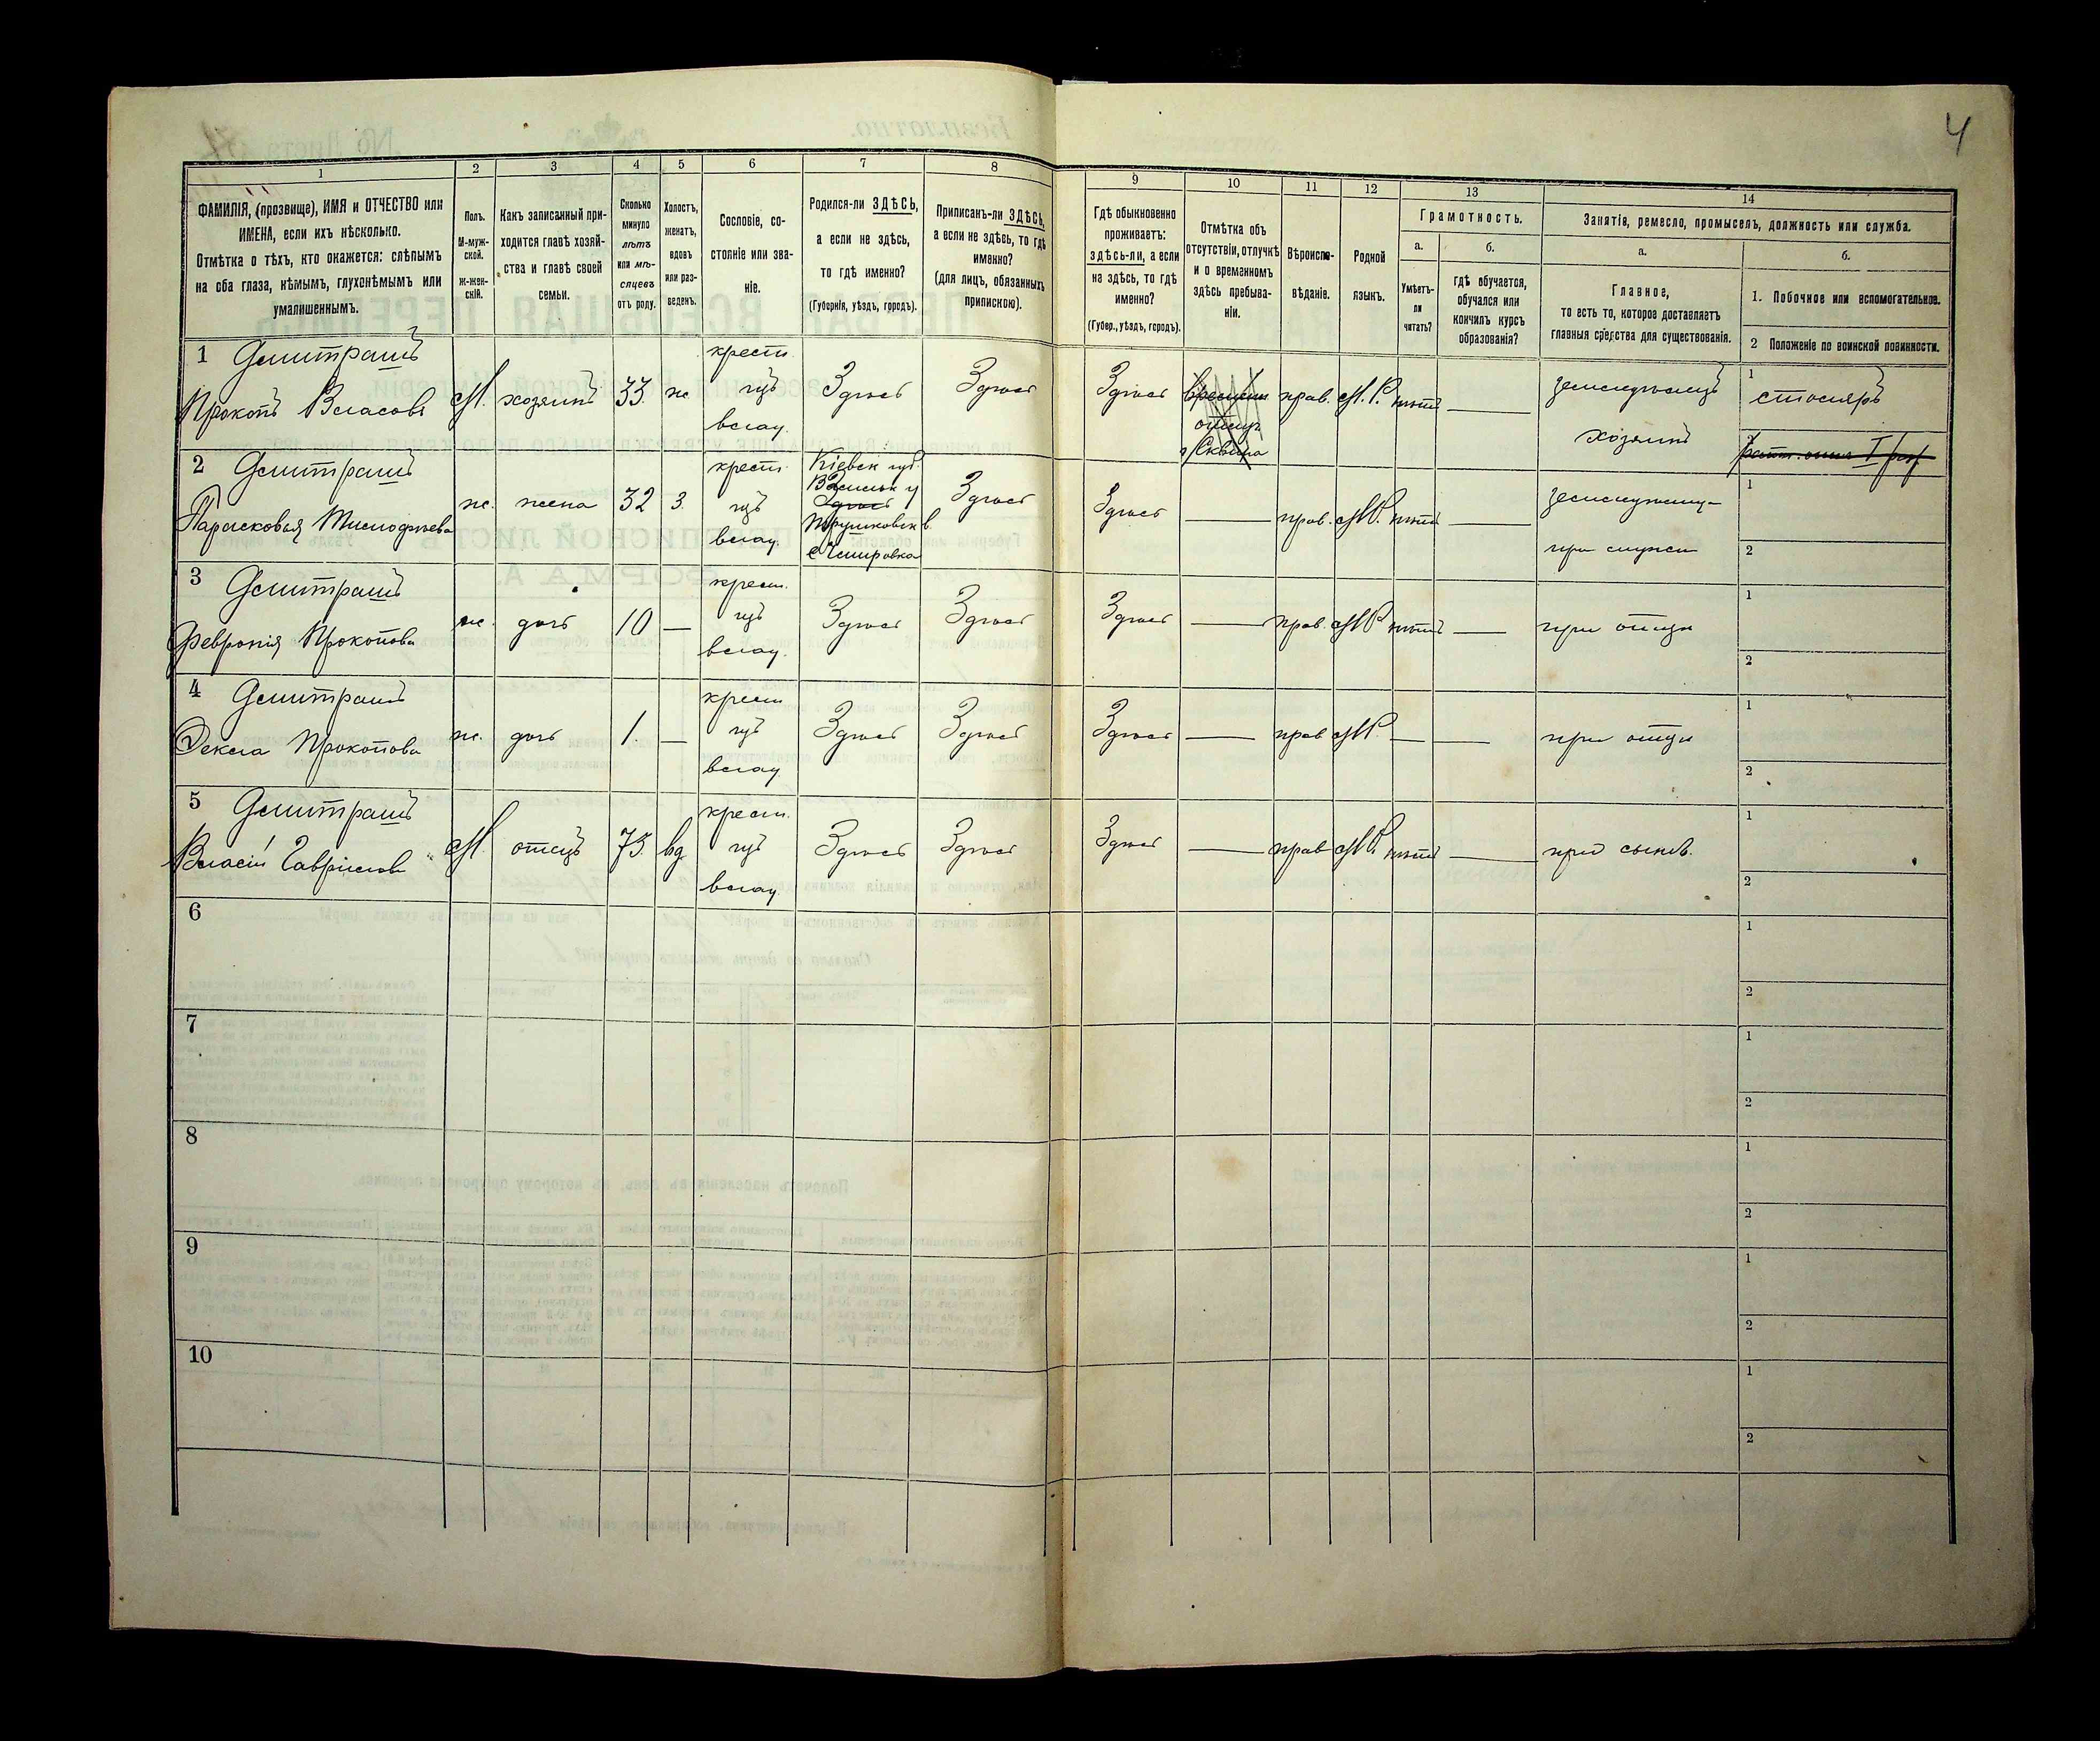 4
1 2 3 4 5 6 7 8 9 10 11 12 13 14
ФАМИЛІЯ, (прозвище), ИМЯ и ОТЧЕСТВО или
ИМЕНА, если ихъ нѣсколько.
Отмѣтка о тѣхъ, кто окажется: слѣпымъ
на оба глаза, нѣмымъ, глухонѣмымъ или
умалишеннымъ.
Полъ.
М-муж-
ской.
Ж-жен-
скій.
Какъ записанный при-
ходится главѣ хозяй-
ства и главѣ своей
семьи.
Сколько
минуло
лѣтъ
или мѣ-
сяцевъ
отъ роду.
Холостъ,
женатъ,
вдовъ
или раз-
веденъ.
Сословіе, со-
стояніе или зва-
ніе.
Родился-ли ЗДѢСЬ,
а если не здѣсь,
то гдѣ именно?
(Губернія, уѣздъ, городъ).
Приписанъ-ли ЗДѢСЬ,
а если не здѣсь, то гдѣ
именно?
(для лицъ, обязанныхъ
припискою).
Гдѣ обыкновенно
проживаетъ:
здѣсь-ли, а если
на здѣсь, то гдѣ
именно?
(Губер., уѣздъ, городъ).
Отмѣтка объ
отсутствіи, отлучкѣ
и о временномъ
здѣсь пребыва-
ніи.
Вѣроиспо-
вѣданіе.
Родной
языкъ.
Грамотность.
а.
Умѣетъ-
ли
читать?
б.
гдѣ обучается,
обучался или
кончилъ курсъ
образованія?
Занятія, ремесло, промыселъ, должность или служба.
а.
Главное,
то есть то, которое доставляетъ
главныя средства для существованія.
б.
1. Побочное или вспомогательное.
2 Положеніе по воинской повинности.
1 Дмитрашъ
Прокопъ Власовъ М. хозяинъ 33. ж крест. изъ влад. Здѣсь Здѣсь Здѣсь прав. М.Р. нѣтъ — земледѣлецъ хозяинъ 1 столяръ 2
г Сквира
2 Дмитрашъ
Парасковья ж. жена 32 з. крест. изъ влад. Кіевск губ. Здѣсь Здѣсь Здѣсь — прав. М.Р. нѣтъ — 1 2
3 Дмитрашъ
Февронія Прокопова ж. дочь 10 — крест. изъ влад. Здѣсь Здѣсь Здѣсь — прав. М.Р. нѣтъ — при отцѣ 1 2
4 Дмитрашъ
Фекла Прокопова ж. дочь 1. — крест изъ влад. Здѣсь Здѣсь Здѣсь — прав М.Р. — — при отцѣ 1 2
5 Дмитрашъ
Власій Гавріиловъ М. отецъ 73. вд крест. изъ влад. Здѣсь Здѣсь Здѣсь — прав М.Р. нѣтъ — при сынѣ. 1 2
6 1 2
7 1 2
8 1 2
9 1 2
10 1 2